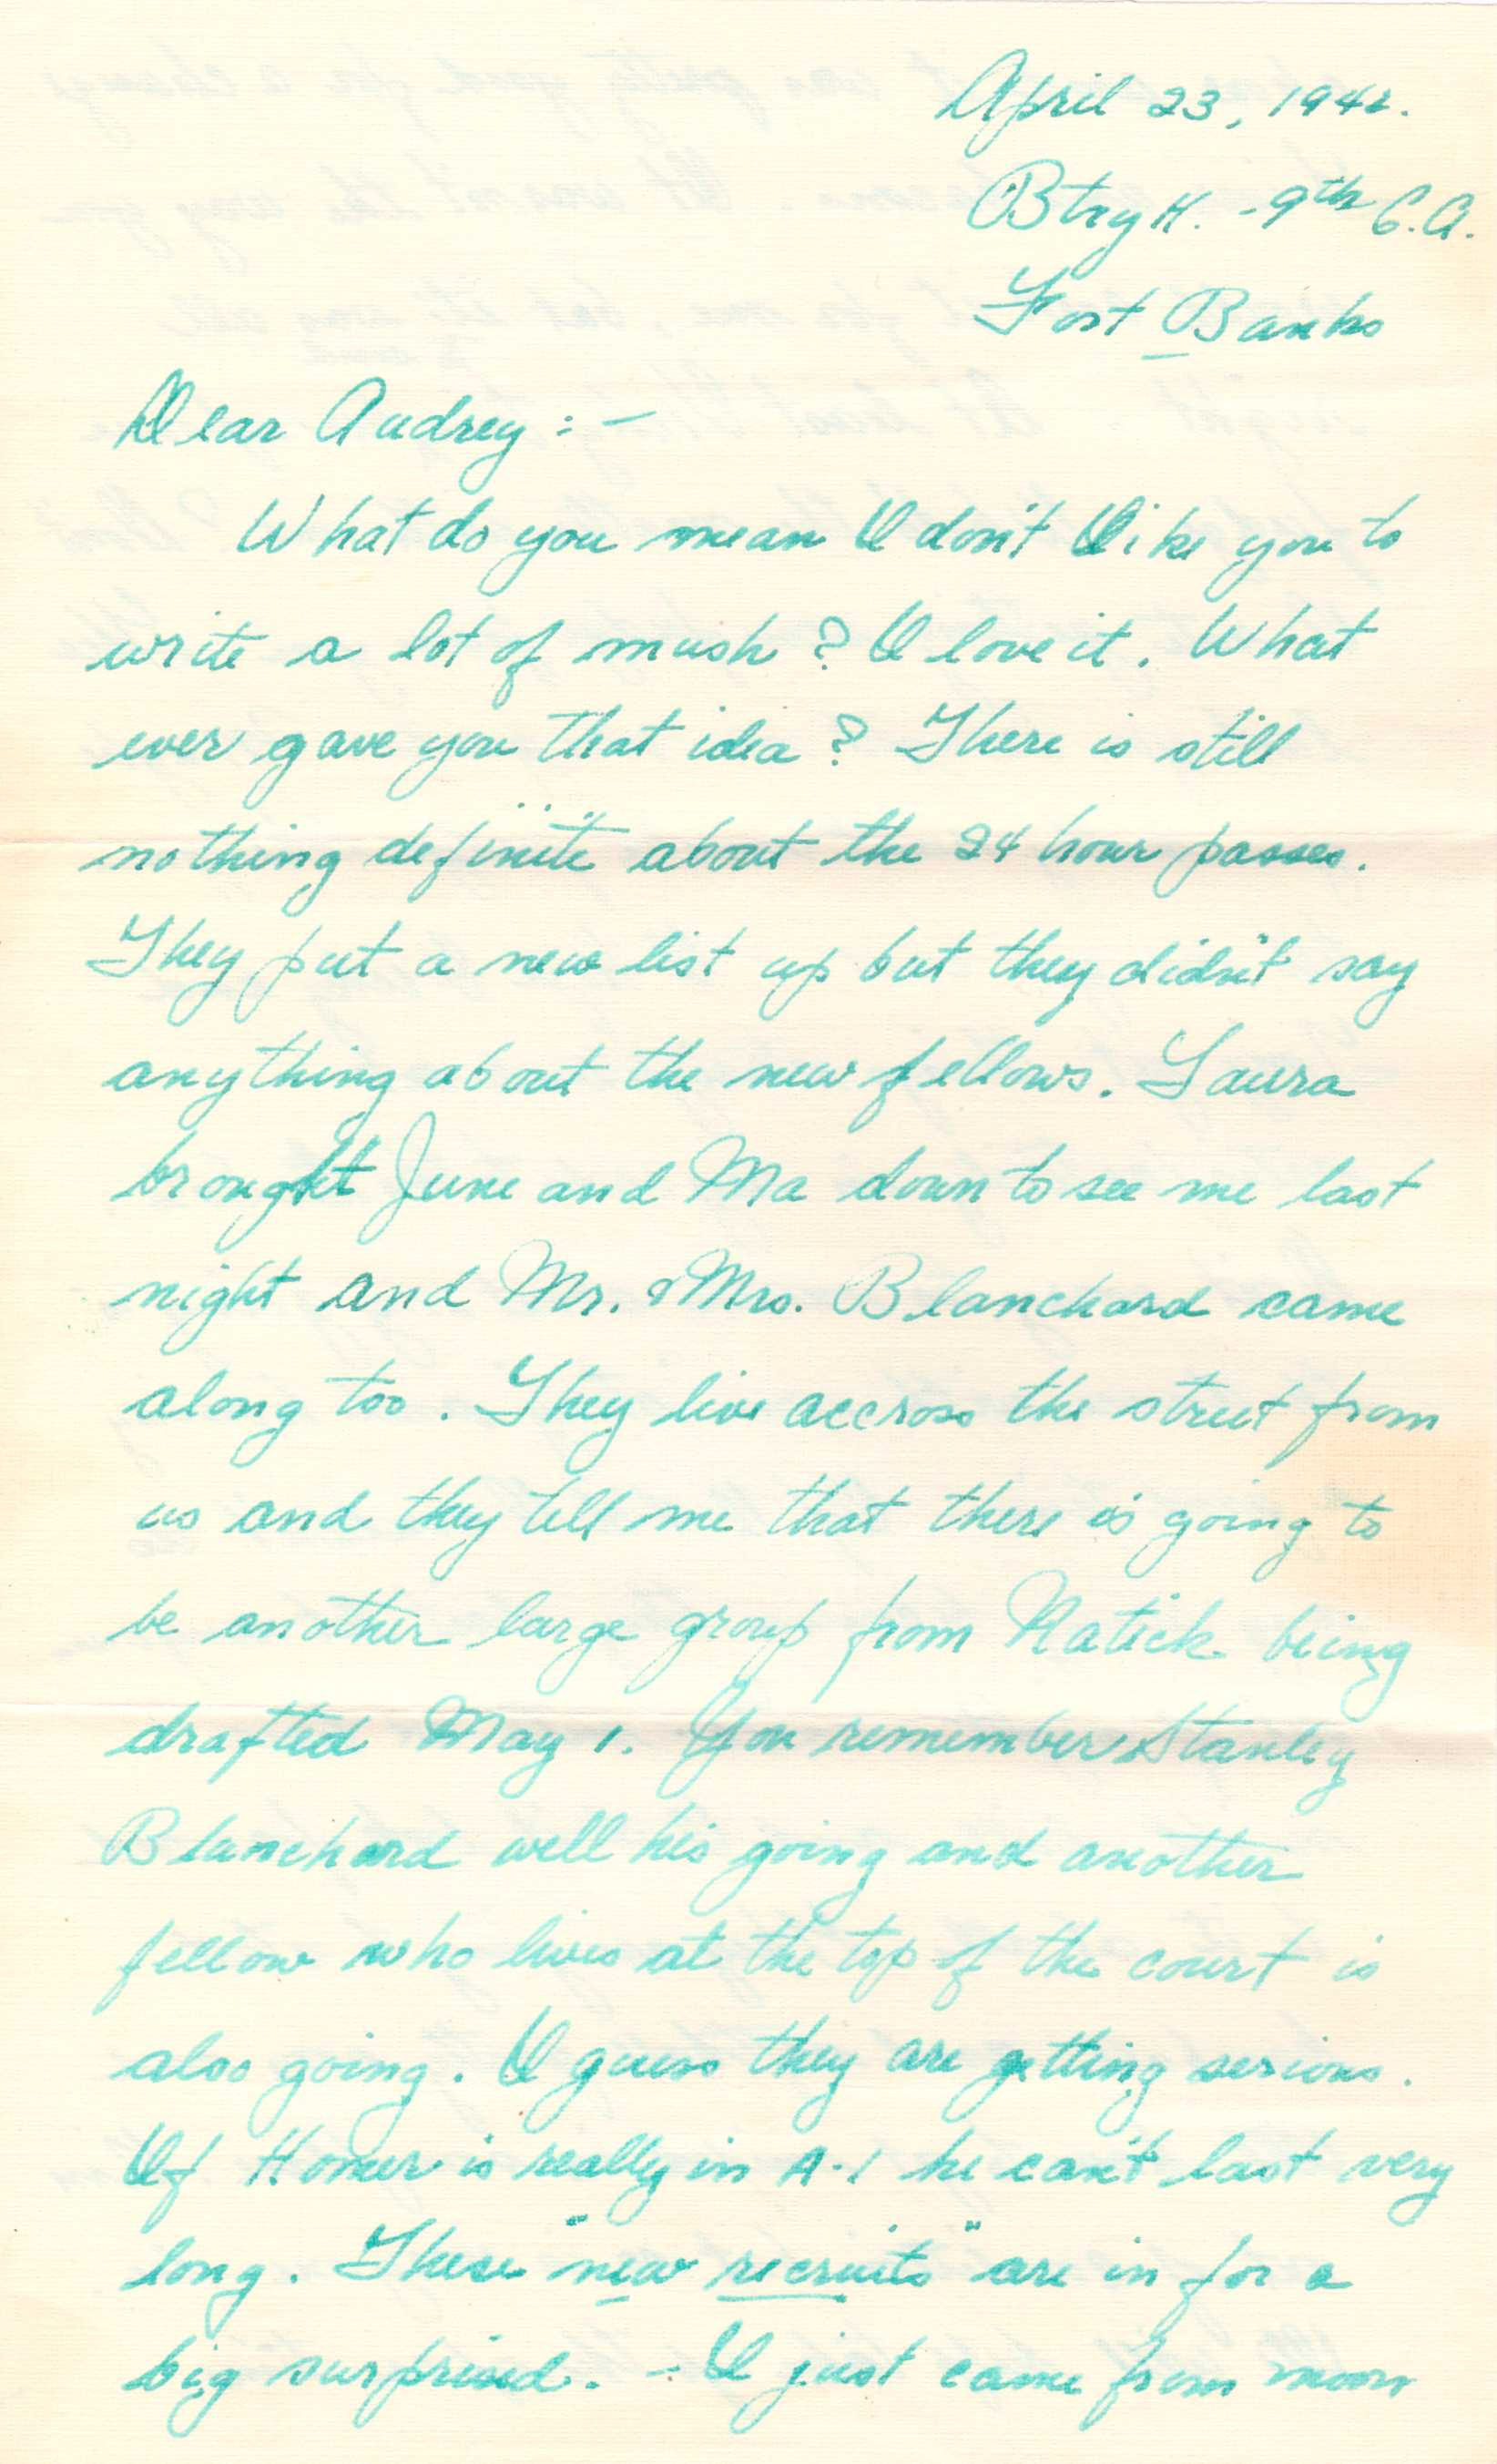 April 23, 1942.
Btry H. - 9th C.A.
Fort Banks
Dear Audrey : -
What do you mean I don't like you to
write a lot of mush ? I love it. What
ever gave you that idea ? There is still
nothing definite about the 24 hour passes.
They put a new list up but they didn't say
anything about the new fellows. Laura
brought June and Ma down to see me last
night and Mr. & Mrs. Blanchard came
along too. They live accross the street from
us and they tell me that there is going to
be another large group from Natick being
drafted May 1. You remember Stanley
Blanchard well his going and another
fellow who lives at the top of the court is
also going. I guess they are getting serious.
If Homer is really in A-1 he can't last very
long. These "new recruits" are in for a
big surprised. - I just came from noon